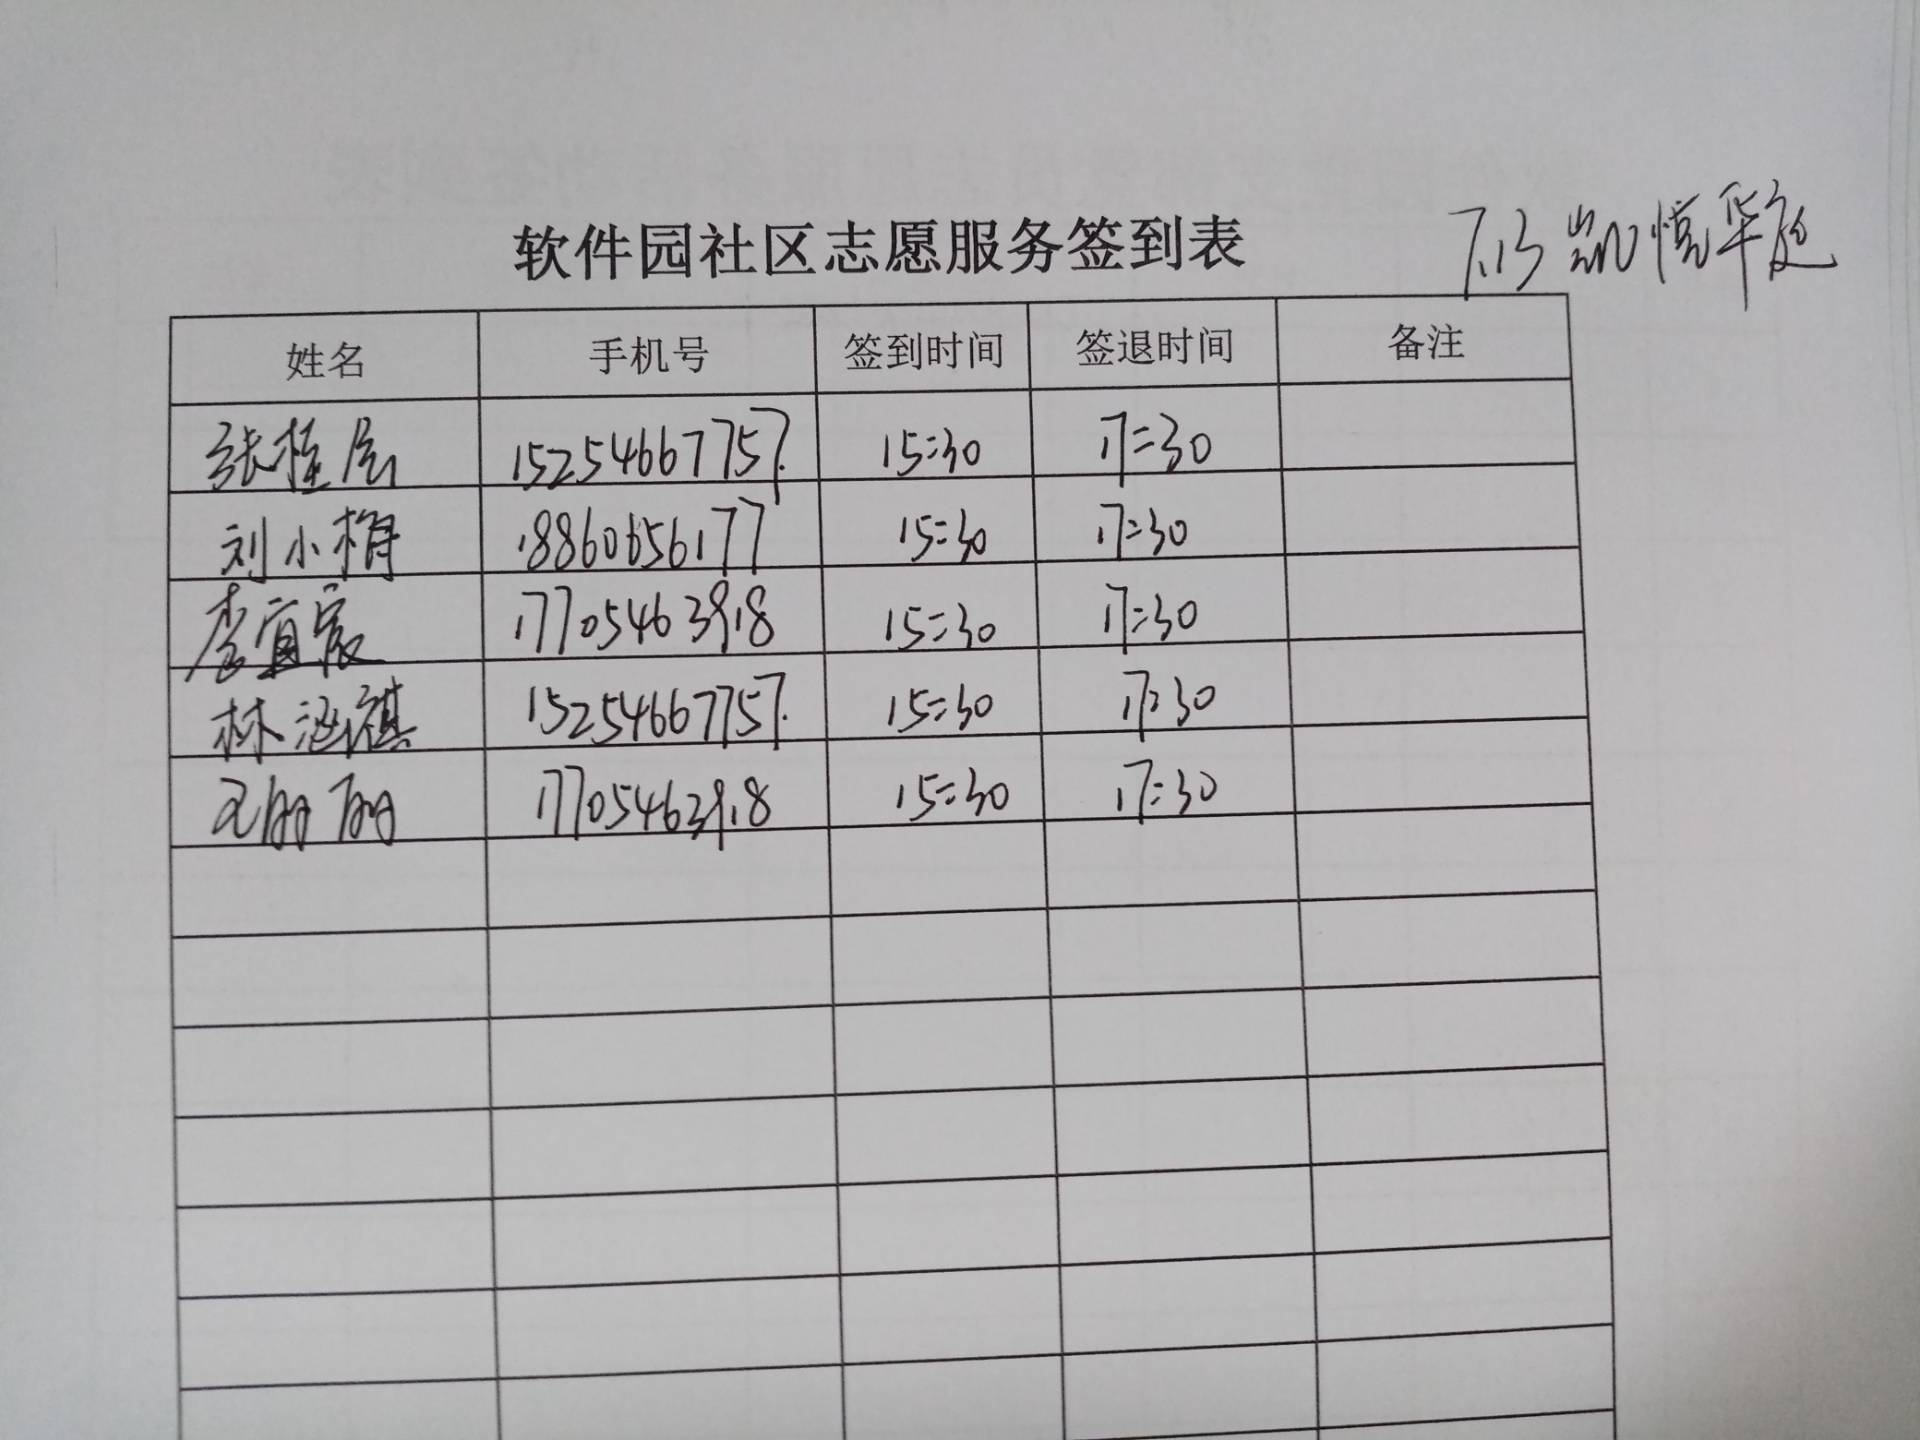 软件园社区志愿服务签到表
7.13 凯悦华庭
姓名 手机号 签到时间 签退时间 备注
张桂 15254667757. 15:30 17:30
刘小 18860656177 15:30 17:30
李宜宸 17705463918 15:30 17:30
林涵祺 15254667757. 15:30 17:30
王丽丽 17705463918 15:30 17:30